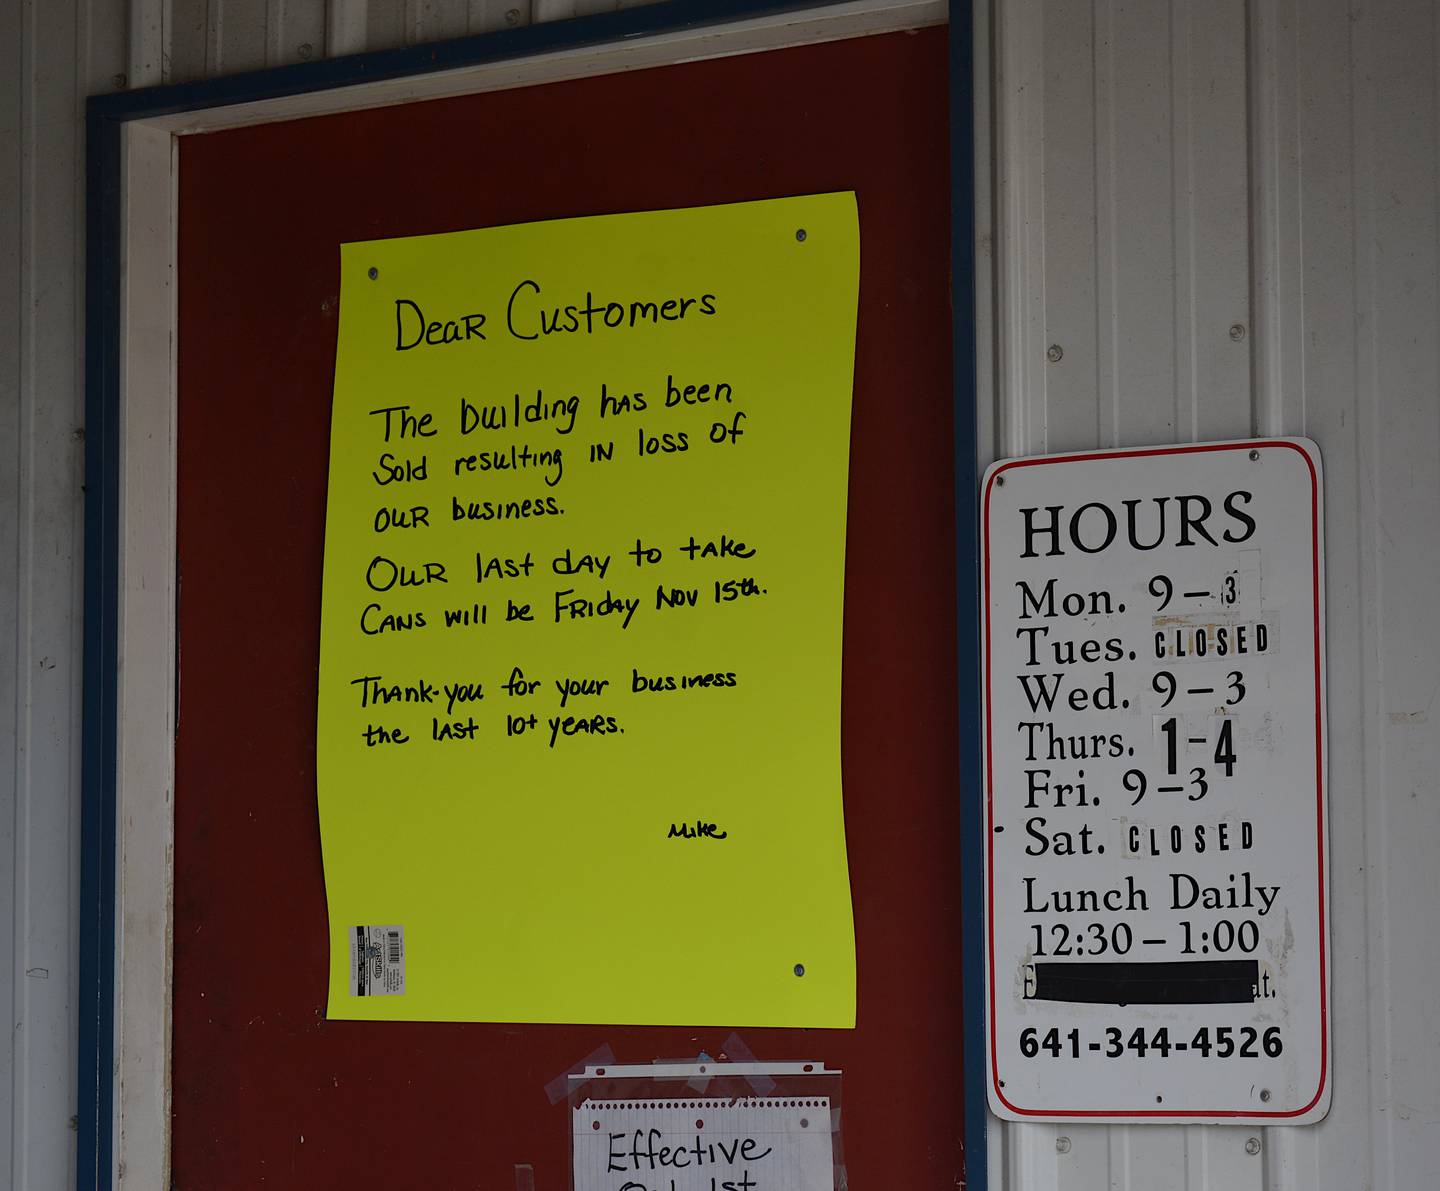 Dear Customers
The building has been
Sold resulting in loss of
our business.
Our last day to take
Cans will be Friday Nov 15th.
Thank-you for your business
the last 10+ years.
Mike
HOURS
Mon. 9-3
Tues. CLOSED
Wed. 9-3
Thurs. 1-4
Fri. 9-3
Sat. CLOSED
Lunch Daily
12:30-1:00
641-344-4526
Effective